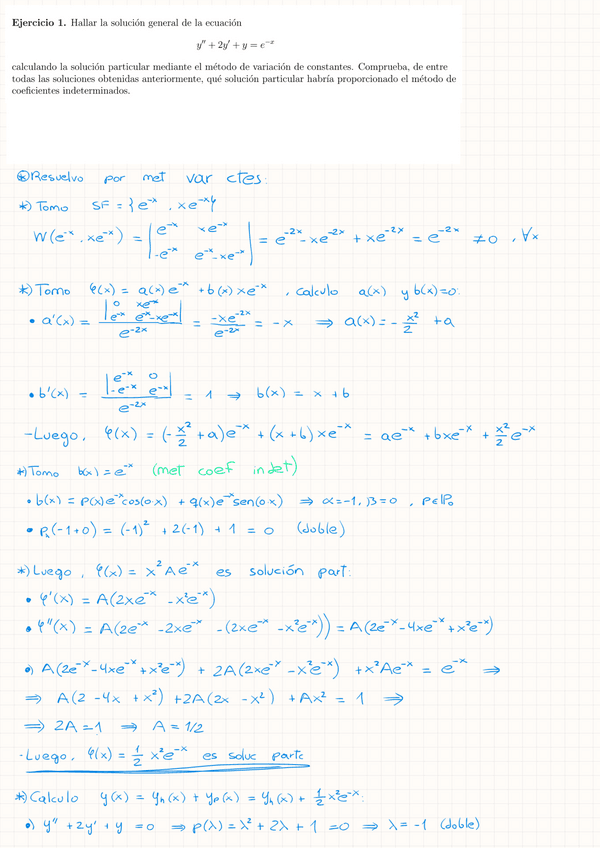 Ejercicio 1. Hallar la solución general de la ecuación
y'' + 2y' + y = e^{-x}
calculando la solución particular mediante el método de variación de constantes. Comprueba, de entre
todas las soluciones obtenidas anteriormente, qué solución particular habría proporcionado el método de
coeficientes indeterminados.
⊛ Resuelvo por met var ctes:
*) Tomo SF = {e^{-x}, xe^{-x}}
W(e^{-x}, xe^{-x}) = |e^{-x} xe^{-x}; -e^{-x} e^{-x}-xe^{-x}| = e^{-2x} - xe^{-2x} + xe^{-2x} = e^{-2x} ≠ 0, ∀x
*) Tomo φ(x) = a(x)e^{-x} + b(x)xe^{-x}, calculo a(x) y b(x)=0:
• a'(x) = |0 xe^{-x}; e^{-x} e^{-x}-xe^{-x}| / e^{-2x} = -xe^{-2x} / e^{-2x} = -x ⇒ a(x) = -x²/2 + a
• b'(x) = |e^{-x} 0; -e^{-x} e^{-x}| / e^{-2x} = 1 → b(x) = x + b
- Luego, φ(x) = (-x²/2 + a)e^{-x} + (x+b)xe^{-x} = ae^{-x} + bxe^{-x} + x²/2 e^{-x}
*) Tomo b(x) = e^{-x} (met coef indet)
• b(x) = P(x)e^{-x}cos(0·x) + q(x)e^{-x}sen(0·x) ⇒ α=-1, β=0, P∈P₀
• P_λ(-1+0) = (-1)² + 2(-1) + 1 = 0 (doble)
*) Luego, φ(x) = x²Ae^{-x} es solución part:
• φ'(x) = A(2xe^{-x} - x²e^{-x})
• φ''(x) = A(2e^{-x} - 2xe^{-x} - (2xe^{-x} - x²e^{-x})) = A(2e^{-x} - 4xe^{-x} + x²e^{-x})
•) A(2e^{-x} - 4xe^{-x} + x²e^{-x}) + 2A(2xe^{-x} - x²e^{-x}) + x²Ae^{-x} = e^{-x} ⇒
⇒ A(2 - 4x + x²) + 2A(2x - x²) + Ax² = 1 ⇒
⇒ 2A = 1 ⇒ A = 1/2
- Luego, φ(x) = 1/2 x²e^{-x} es soluc partc
*) Calculo y(x) = y_h(x) + y_p(x) = y_h(x) + 1/2 x²e^{-x}:
•) y'' + 2y' + y = 0 ⇒ p(λ) = λ² + 2λ + 1 = 0 ⇒ λ = -1 (doble)